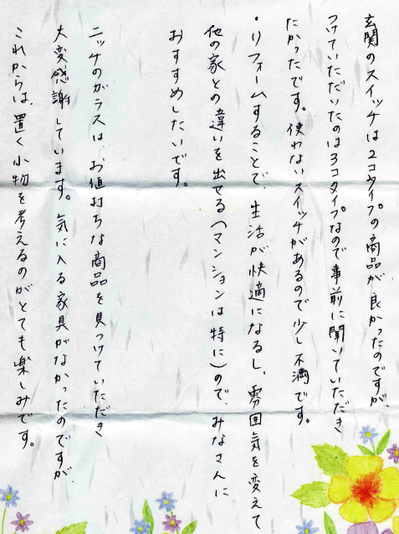 玄関のスイッチは2コタイプの商品が良かったのですが、
つけていただいたのは3コタイプなので事前に聞いていただき
たかったです。使わないスイッチがあるので少し不満です。
・リフォームすることで、生活が快適になるし、雰囲気を変えて
他の家との違いを出せる(マンションは特に)ので、みなさんに
おすすめしたいです。
ニッチのガラスは、お値打ちな商品を見つけていただき
大変感謝しています。気に入る家具がなかったのですが、
これからは、置く小物を考えるのがとても楽しみです。